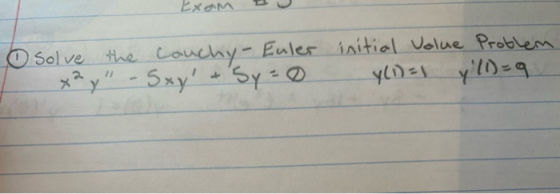 Exam
① Solve the Cauchy-Euler initial Value Problem
x² y'' - 5xy' + 5y = 0 y(1)=1 y'(1)=9